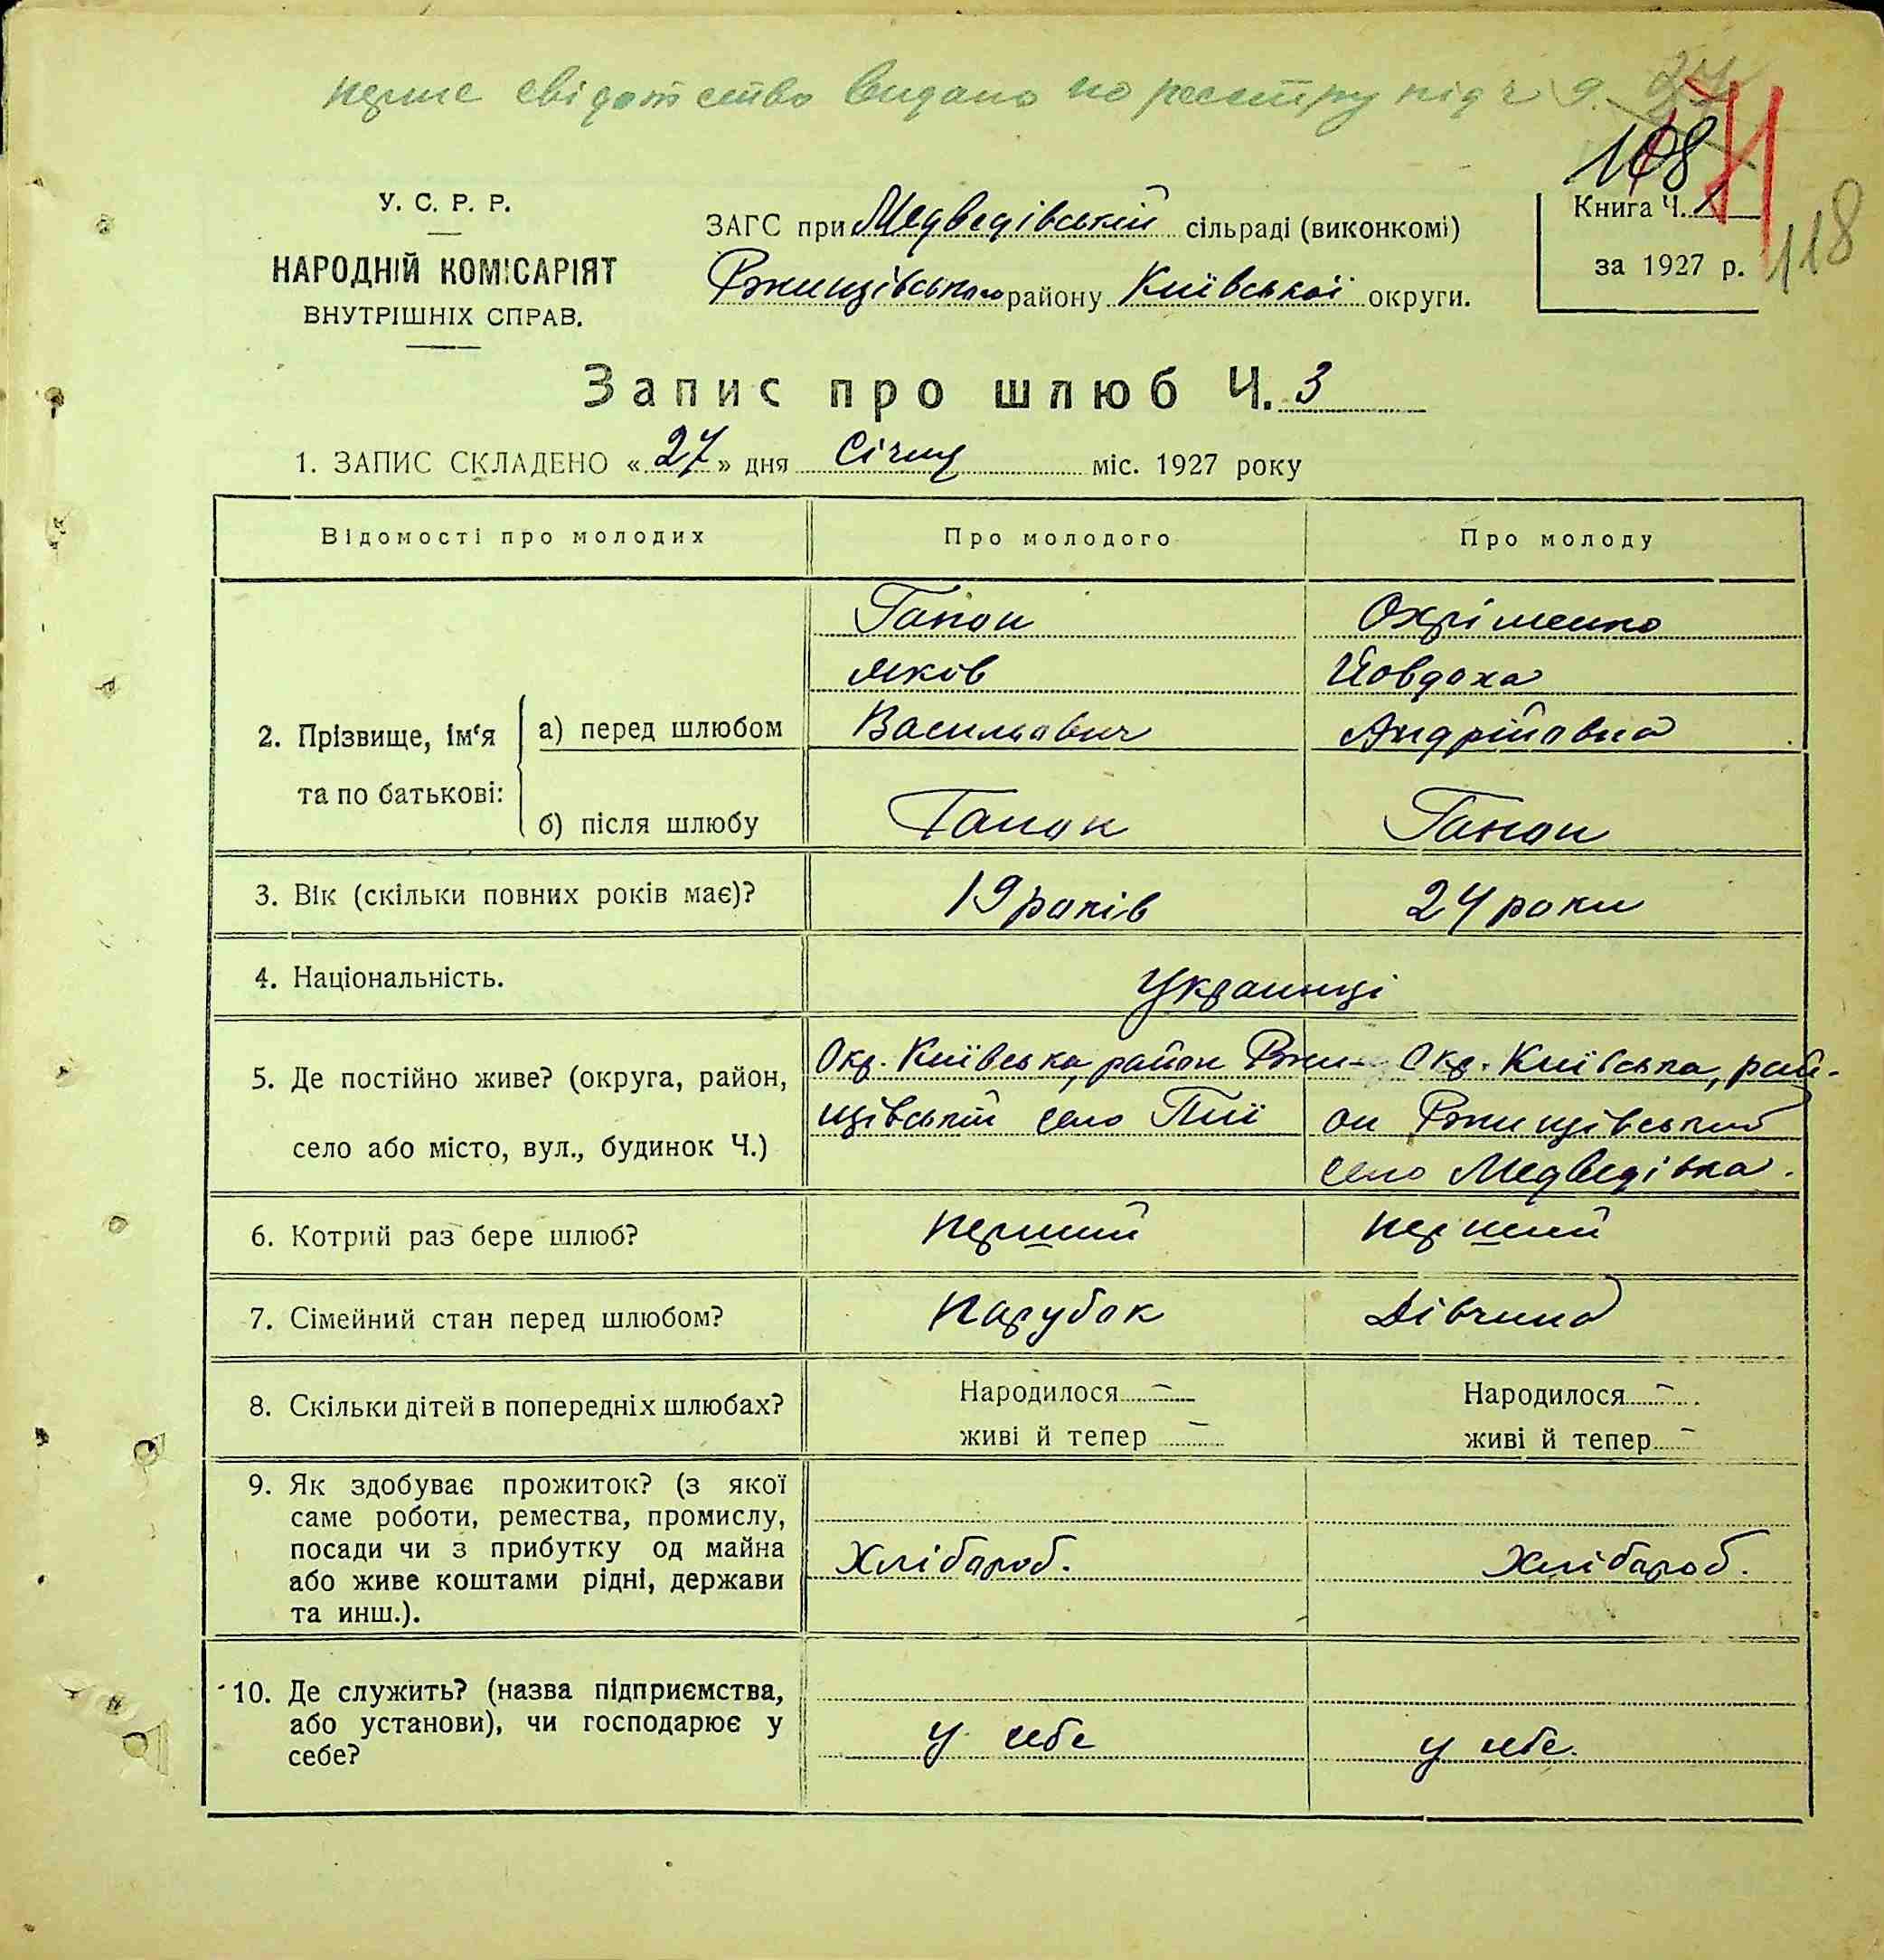 перше свідотство видано по реєстру під ч 9.
108
118
У. С. Р. Р.
НАРОДНІЙ КОМІСАРІЯТ
ВНУТРІШНІХ СПРАВ.
ЗАГС при Медведівській сільраді (виконкомі)
Ржищівського району Київської округи.
Книга Ч. 1
за 1927 р.
Запис про шлюб Ч. 3
1. ЗАПИС СКЛАДЕНО « 27 » дня Січня міс. 1927 року
Відомості про молодих Про молодого Про молоду
2. Прізвище, ім'я та по батькові:
а) перед шлюбом
Гапон Охріменко
Яків Йовдоха
Васильович Андрійовна
б) після шлюбу Гапон Гапон
3. Вік (скільки повних років має)? 19 років 24 роки
4. Національність. Українці
5. Де постійно живе? (округа, район,
село або місто, вул., будинок Ч.)
Окр. Київська, район Ржи-
щівський село Пії
Окр. Київська, рай-
он Ржищівський
село Медведівка.
6. Котрий раз бере шлюб? перший перший
7. Сімейний стан перед шлюбом? Парубок Дівчина
8. Скільки дітей в попередніх шлюбах?
Народилося — Народилося —
живі й тепер — живі й тепер —
9. Як здобуває прожиток? (з якої
саме роботи, ремества, промислу,
посади чи з прибутку од майна
або живе коштами рідні, держави
та инш.).
Хлібороб. Хлібороб.
10. Де служить? (назва підприємства,
або установи), чи господарює у
себе?
у себе у себе.